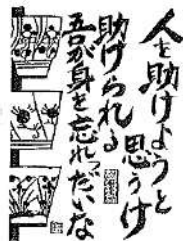 人を助けようと
思うけ
助けられる
吾が身を忘れっだいな